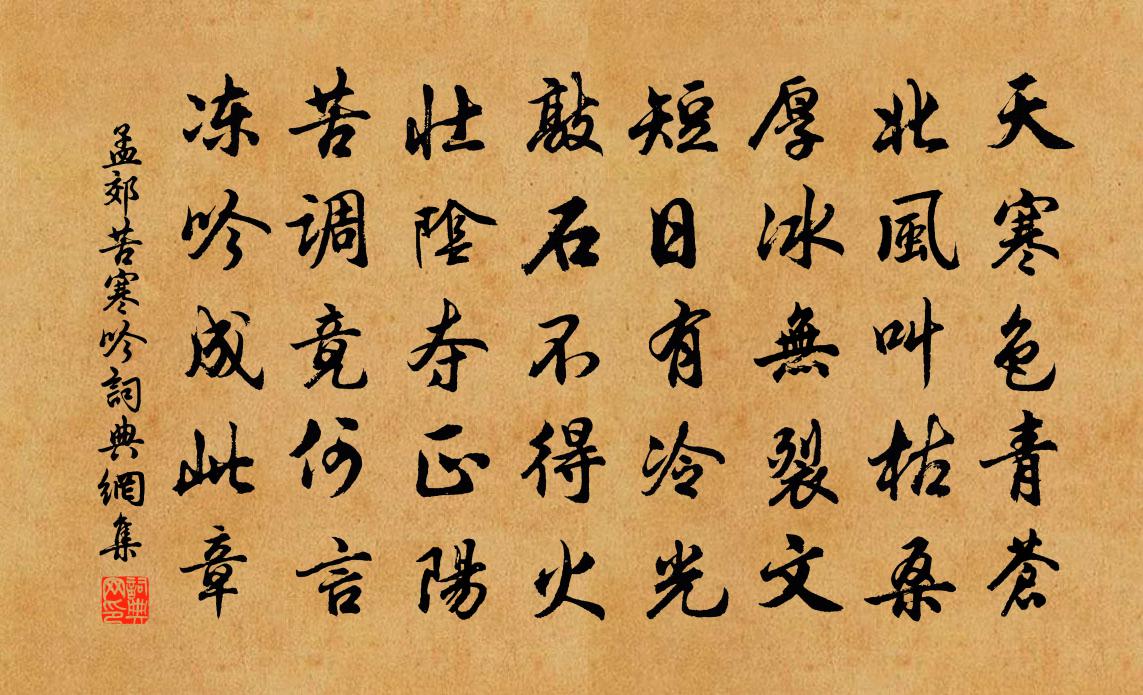 天寒色青蒼
北風叫枯桑
厚冰無裂文
短日有冷光
敲石不得火
壮陰夺正陽
苦调竟何言
冻吟成此章
孟郊苦寒吟詞典網集
詞典网印